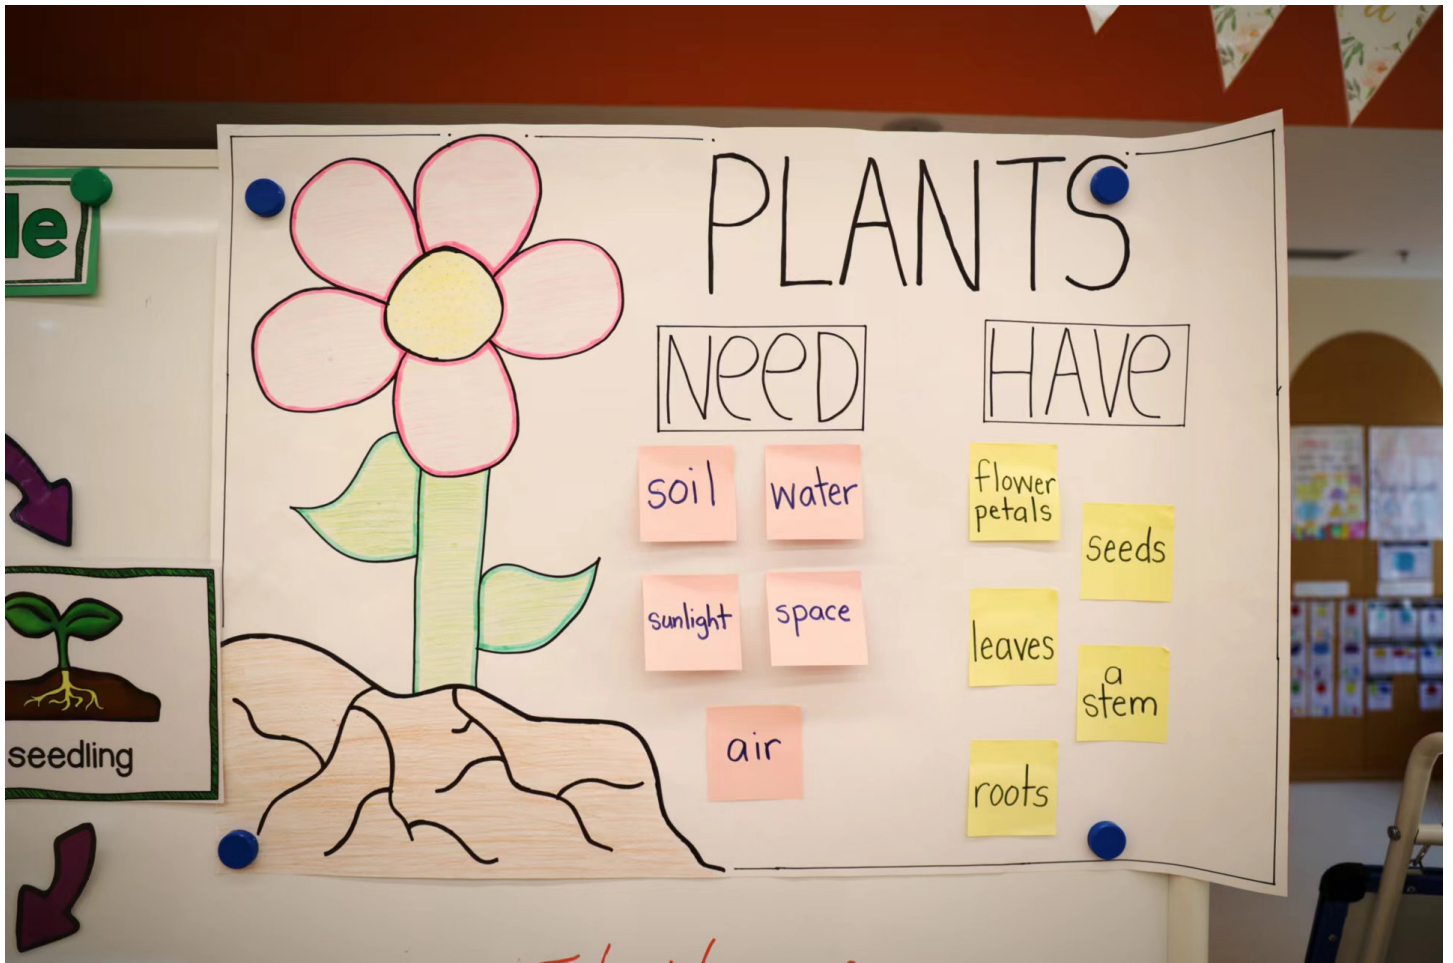 le
seedling
PLANTS
NeeD
HAVe
soil
water
sunlight
space
air
flower
petals
seeds
leaves
a
stem
roots